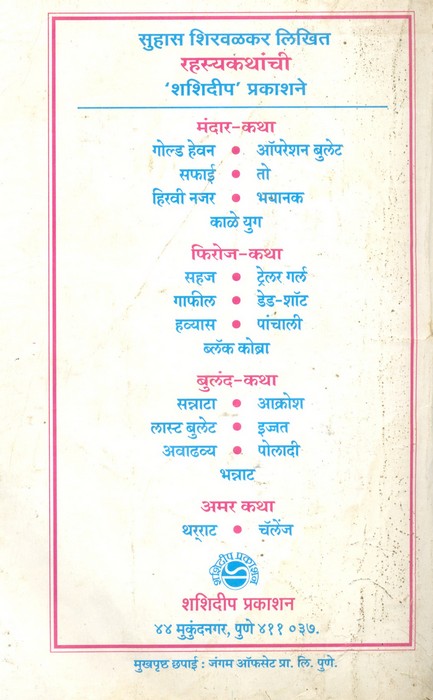 सुहास शिरवळकर लिखित
रहस्यकथांची
'शशिदीप' प्रकाशने
मंदार-कथा
गोल्ड हेवन ● ऑपरेशन बुलेट
सफाई ● तो
हिरवी नजर ● भयानक
काळे युग
फिरोज-कथा
सहज ● ट्रेलर गर्ल
गाफील ● डेड-शॉट
हव्यास ● पांचाली
ब्लॅक कोब्रा
बुलंद-कथा
सन्नाटा ● आक्रोश
लास्ट बुलेट ● इज्जत
अवाढव्य ● पोलादी
भन्नाट
अमर कथा
थर्राट ● चॅलेंज
शशिदीप प्रकाशन
शशिदीप प्रकाशन
४४ मुकुंदनगर, पुणे ४११ ०३७.
मुखपृष्ठ छपाई : जंगम ऑफसेट प्रा. लि. पुणे.